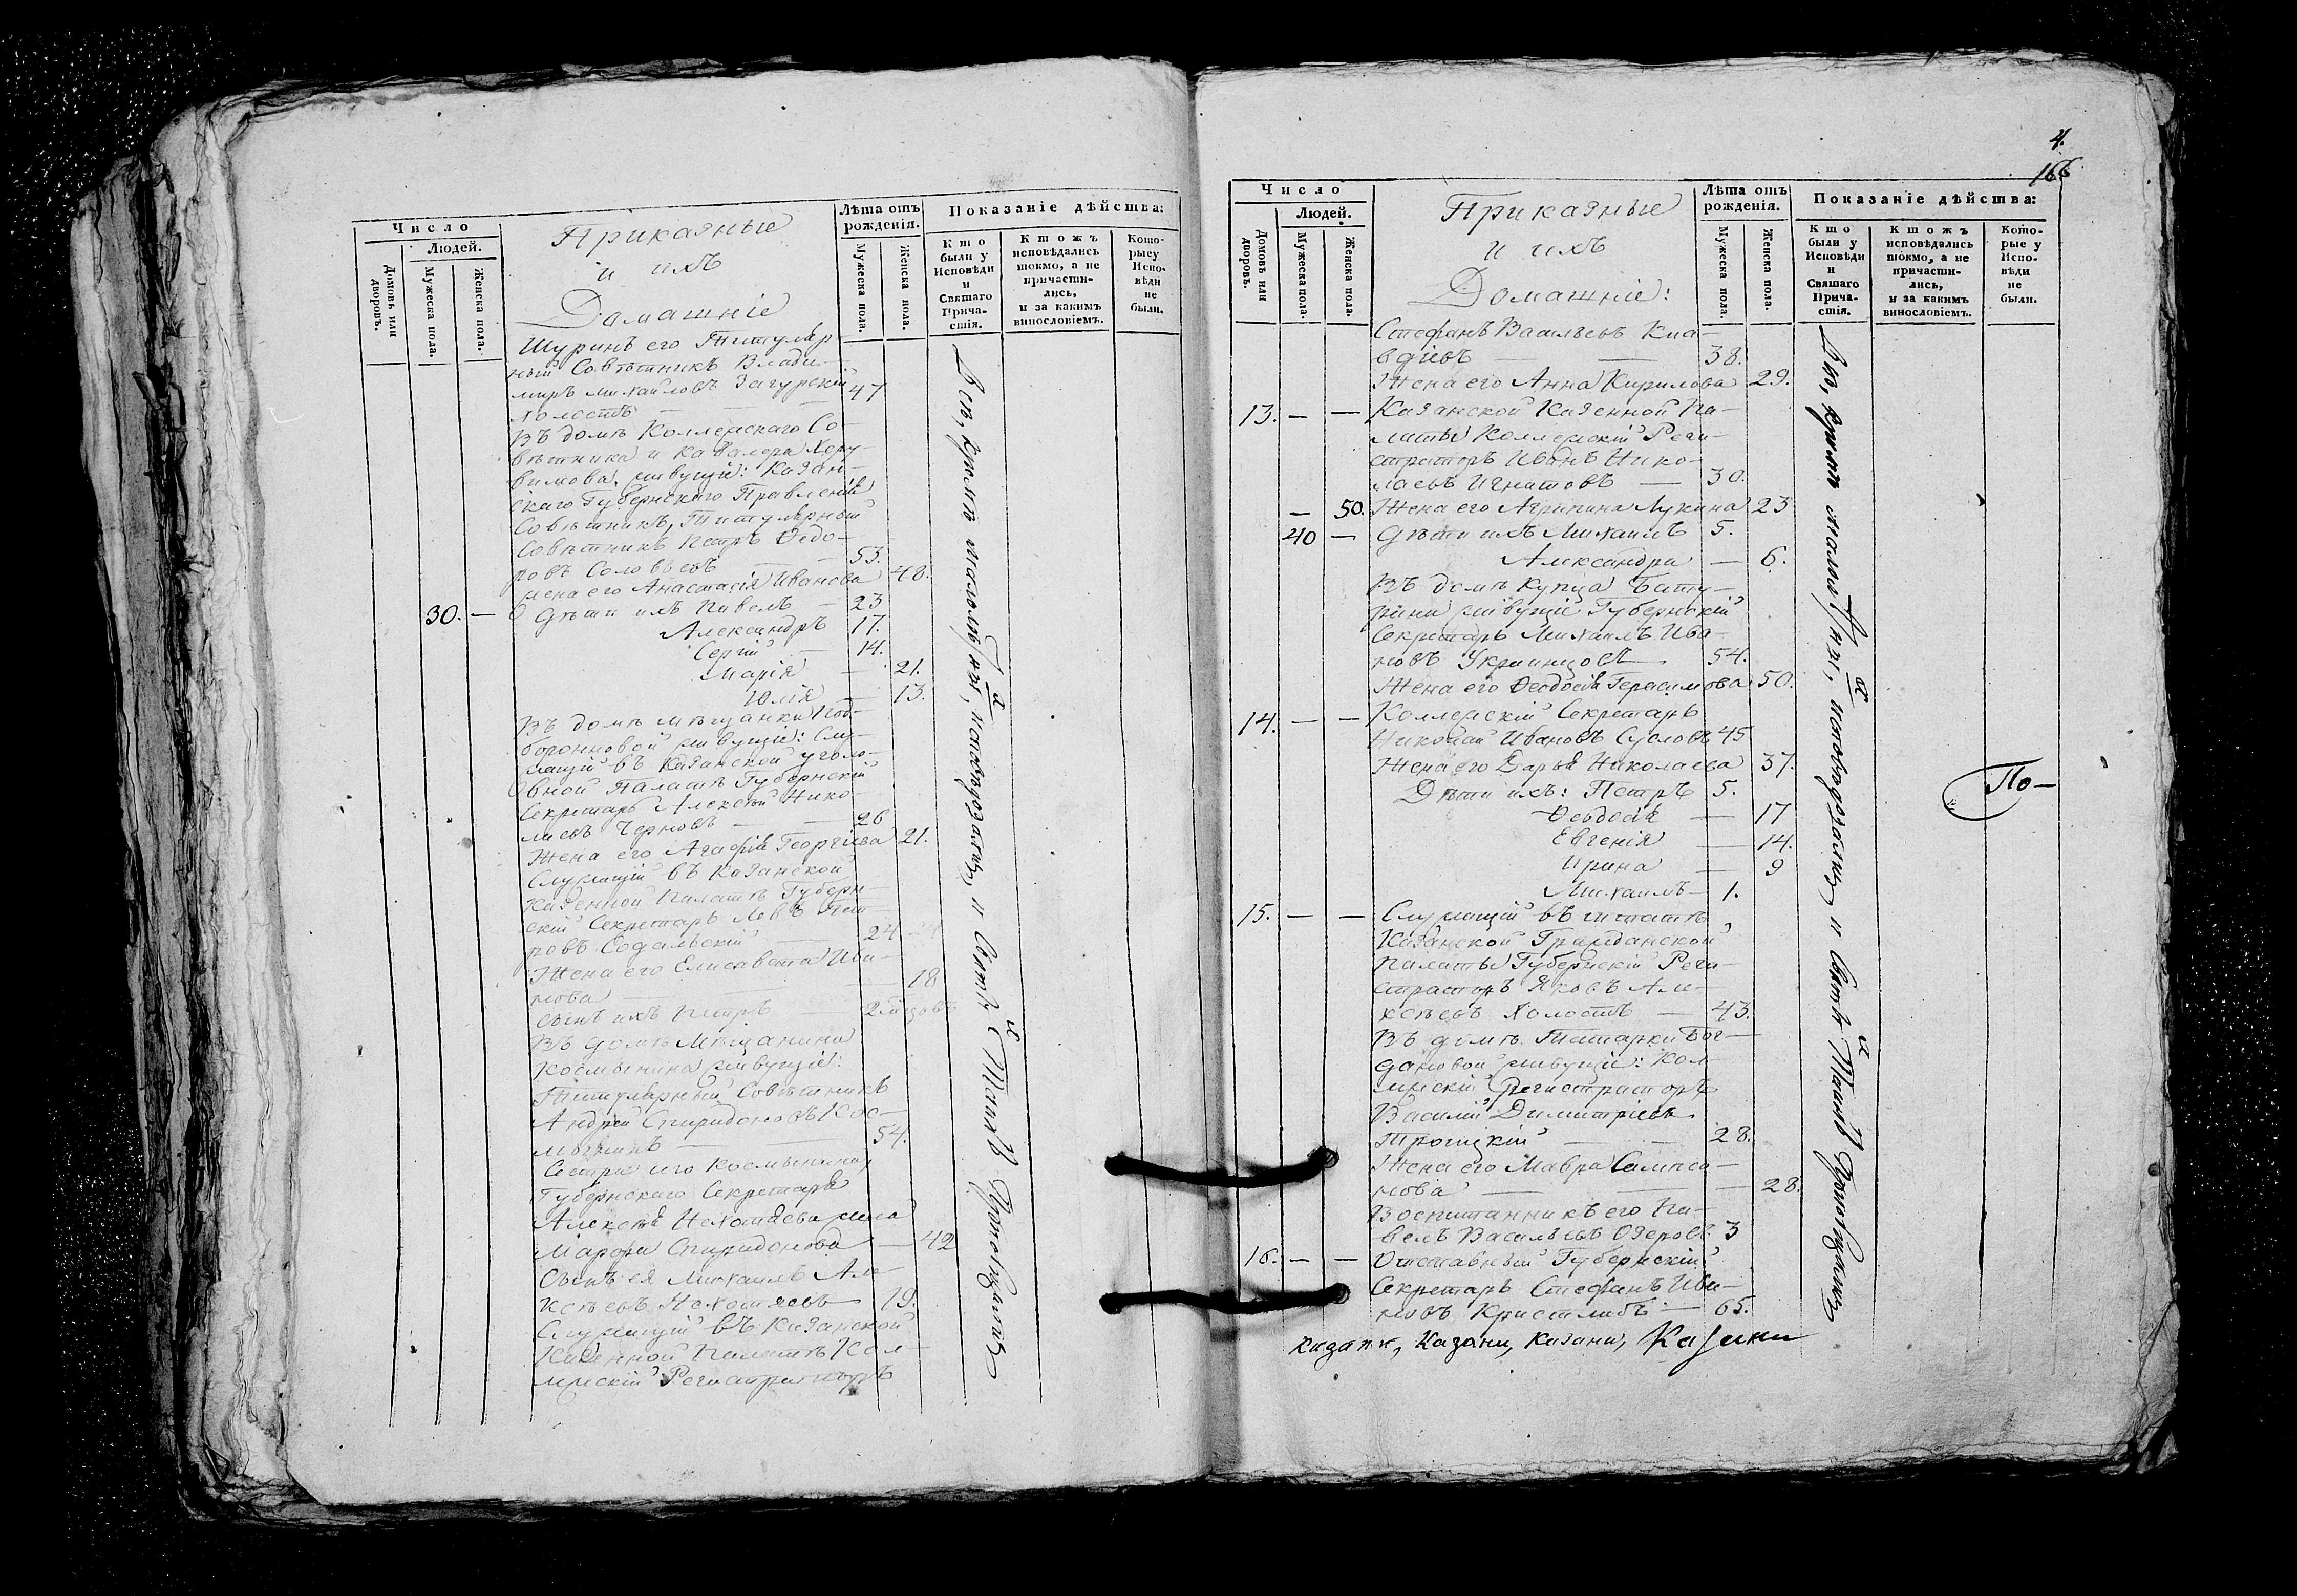 Число
Людей.
Домовъ или дворовъ.
Мужеска пола.
Женска пола.
Приказные
и ихъ
Домашніе
Лѣта отъ рожденія.
Мужеска пола.
Женска пола.
Показаніе дѣйства:
Кто были у Исповѣди и Святаго Прича-стія.
Ктожъ исповѣдались токмо, а не причасти-лись, и за какимъ винословіемъ.
Кото-рые у Испо-вѣди не были.
Шуринъ его Титуляр
ный Совѣтникъ Влади-
миръ Михайловъ Загурскій 47
холостъ — —
Въ домѣ Коллежскаго Со-
вѣтника и кавалера Херу-
вимова, живущіе: Казан-
скаго Губернскаго Правленія
Совѣтникъ, Титулярный
Совѣтникъ Петръ Ѳедо-
ровъ Соловьевъ — 53.
жена его Анастасія Иванова 48.
30. — Дѣти ихъ Павелъ — 23
Александръ 17.
Сергій — 14.
Марія — 21.
Юлія — 13.
Въ домѣ мѣщанки
живущіе: Слу-
жащій въ Казанской уголо-
вной Палатѣ Губернскій
Секретарь Алексѣй Нико-
лаевъ Черновъ — 26
Жена его Агафія Георгіева 21.
Служащій въ Казанской
Казенной Палатѣ Губерн-
скій Секретарь Левъ Пет-
ровъ Содальскій — 24
Жена его Елисавета Ива-
нова — 18
сынъ ихъ Петръ — 2
Въ домѣ Мѣщанина
Космынина живущіе:
Титулярный Совѣтникъ
Андрей Спиридоновъ Кос-
мынинъ — 54.
Сестра его Космынина,
Губернскаго Секретаря
Алексѣя Нехотяева жена
Марфа Спиридонова — 42
Сынъ ея Михаилъ Але-
ксѣевъ Нехотяевъ — 19.
Служащій въ Казанской
Казенной Палатѣ Кол-
лежскій Регистраторъ
Всѣ, кромѣ малолѣтнихъ, исповѣдовались и Святыхъ Таинъ Причащались
4.
166
Число
Людей.
Домовъ или дворовъ.
Мужеска пола.
Женска пола.
Приказные
и ихъ
Домашніе:
Лѣта отъ рожденія.
Мужеска пола.
Женска пола.
Показаніе дѣйства:
Кто были у Исповѣди и Святаго Прича-стія.
Ктожъ исповѣдались токмо, а не причасти-лись, и за какимъ винословіемъ.
Кото-рые у Испо-вѣди не были.
Стефанъ Васильевъ Кла-
вдіевъ — — 38.
Жена его Анна Кирилова 29.
13. — — Казанской Казенной Па-
латы Коллежскій Реги-
страторъ Иванъ Нико-
лаевъ Игнатовъ — 30.
— 50. Жена его Агрипина Лукина 23
40 — Дѣти ихъ Михаилъ 5.
Александра — 6.
Въ домѣ купца Бату-
рина живущіе Губернскій
Секретарь Михаилъ Ива-
новъ Украинцовъ 54.
Жена его Ѳеодосія Герасимова 50.
14. — — Коллежскій Секретарь
Николай Ивановъ Сусловъ 45
Жена его Дарья Николаева 37.
Дѣти ихъ: Петръ 5.
Ѳеодосія — 17
Евгенія — 14.
Ирина — 9
Михаилъ — 1.
15. — — Служащій въ штатѣ
Казанской Гражданской
палаты Губернскій Реги-
страторъ Яковъ Але-
ксѣевъ Холостъ — 43.
Въ домѣ Татарки Бог-
дановой живущіе: Кол-
лежскій Регистраторъ
Василій Димитріевъ
Троицкій — — 28.
Жена его Мавра Сампсо-
нова — — — 28.
Воспитанникъ его Па-
велъ Васильевъ Озеровъ 3
16. — — Отставный Губернскій
Секретарь Стефанъ Ива-
новъ Кристлибъ — 65.
Всѣ, кромѣ малолѣтнихъ, исповѣдовались и Святыхъ Таинъ Причащались
По-
Казани, Казани, Казани, Казани